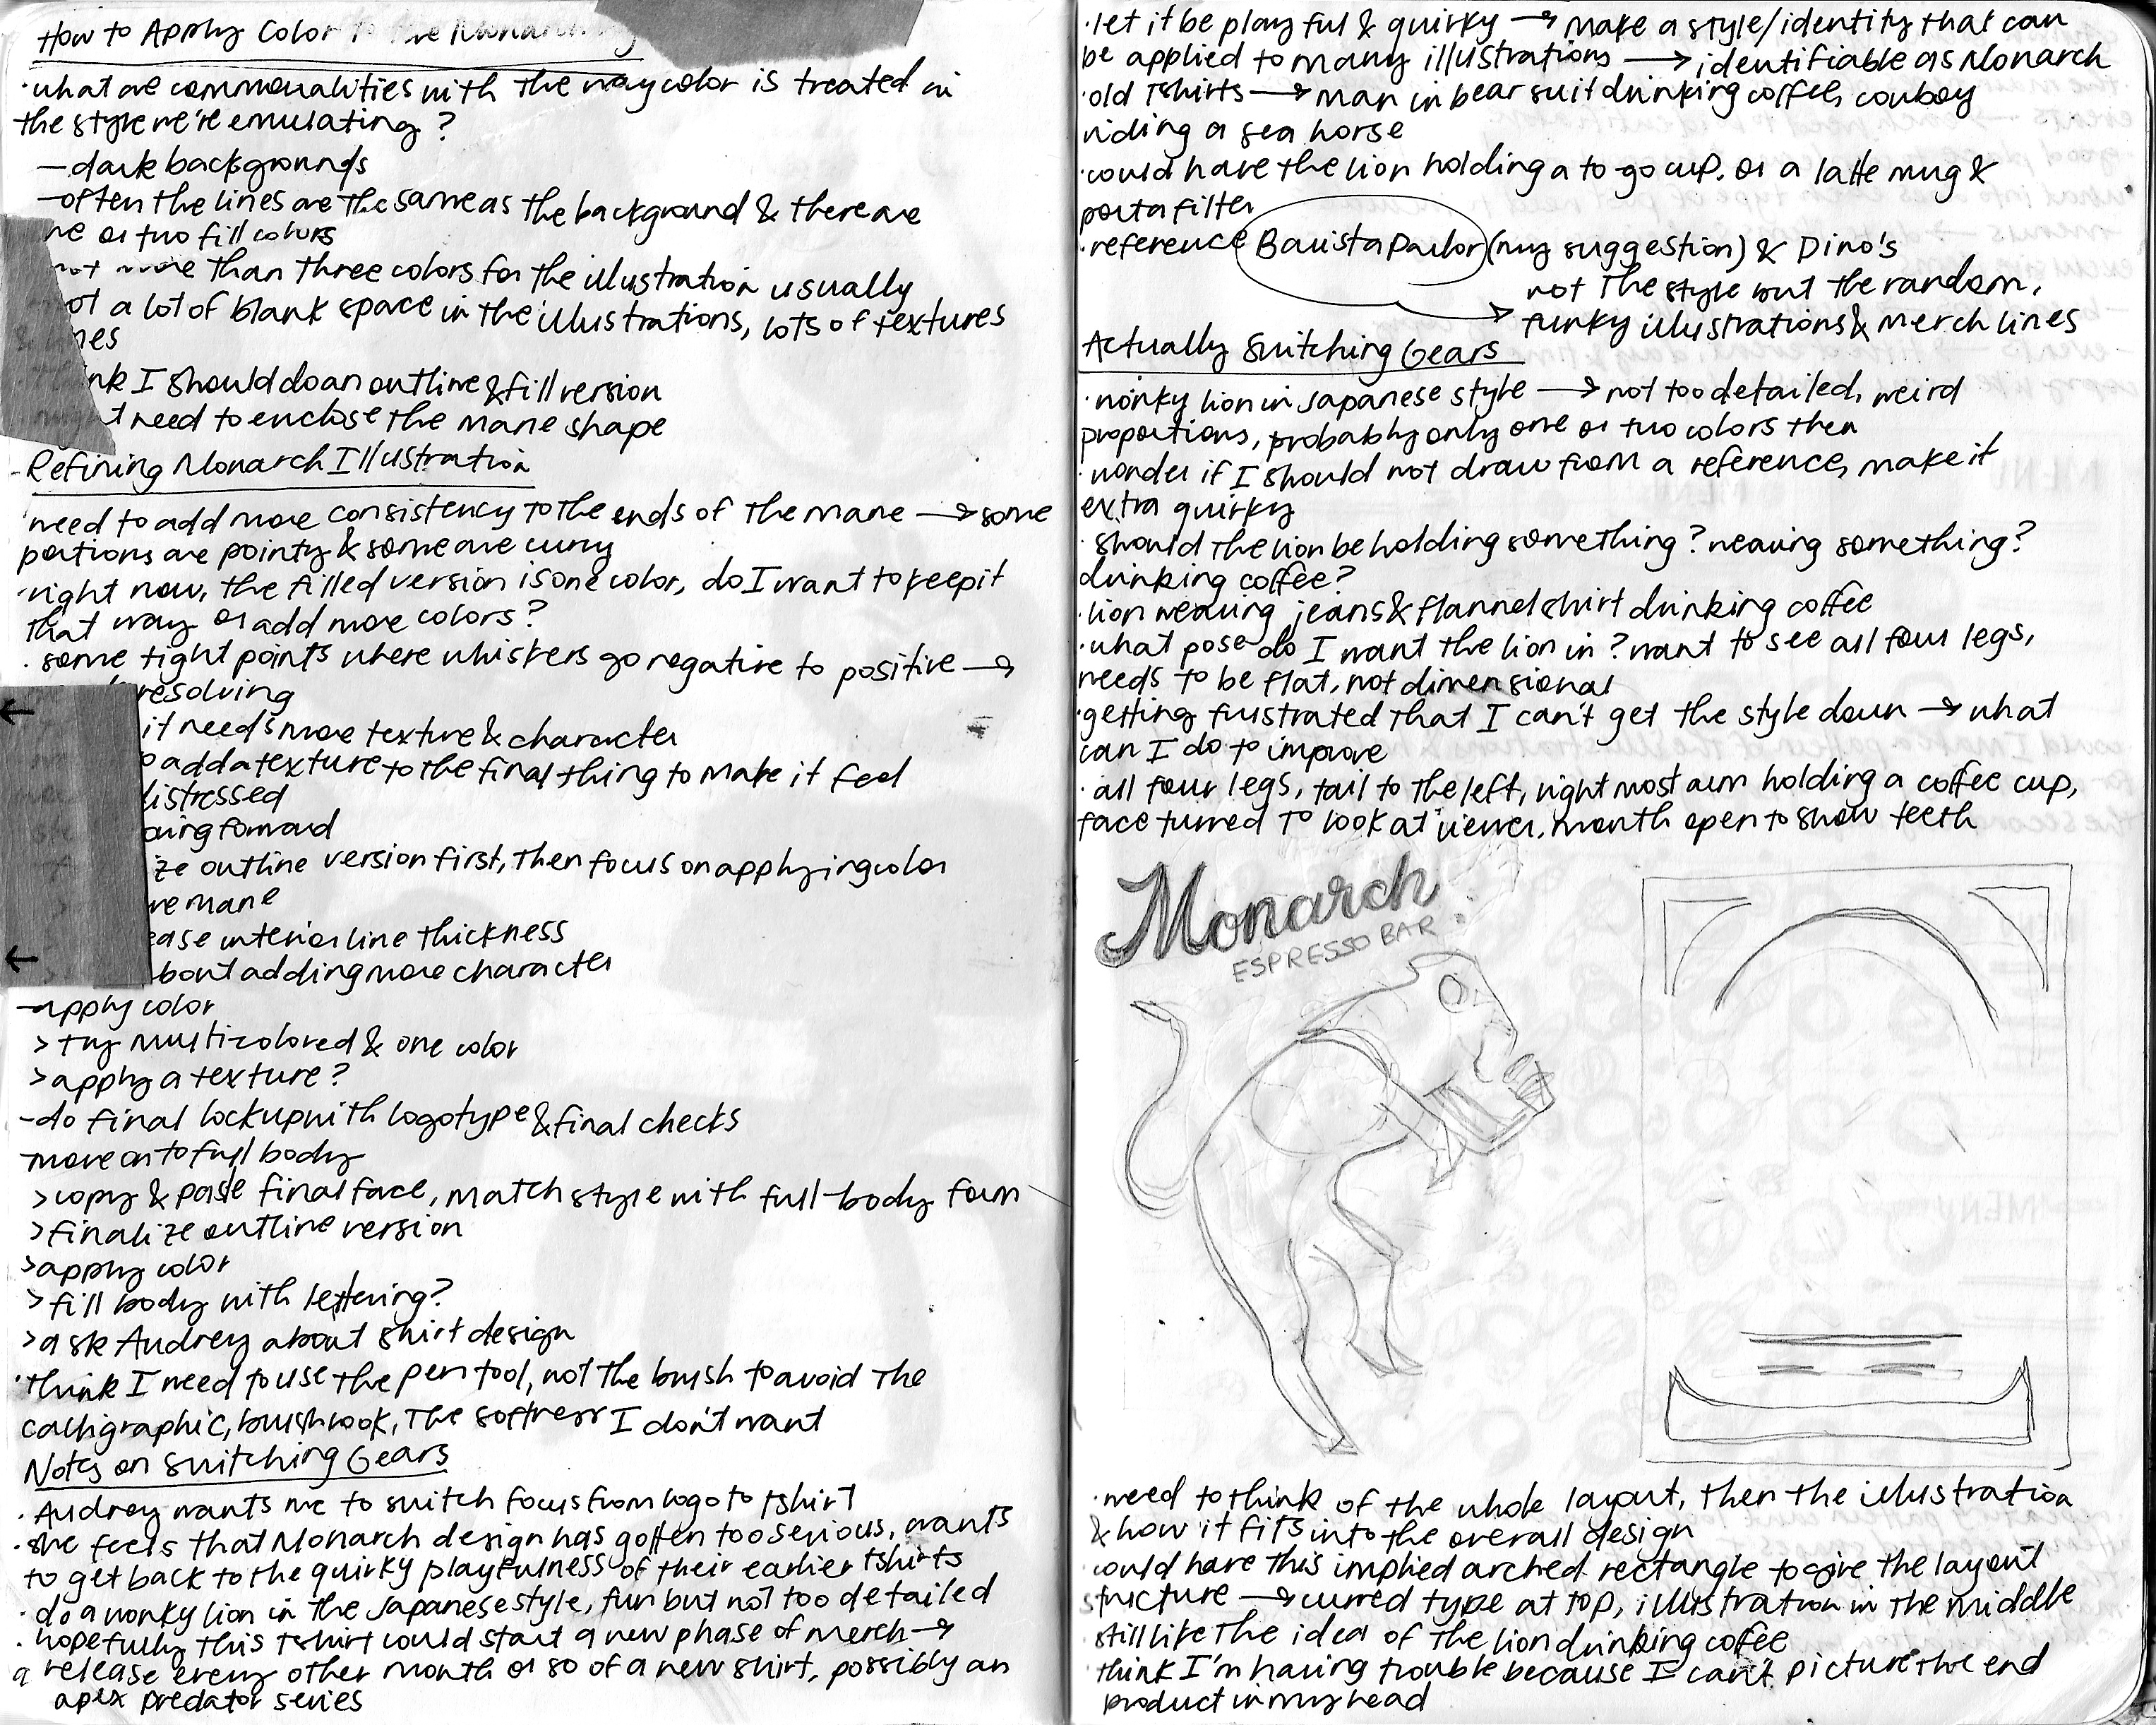 How to Apply Color to the Monarch
·what are commonalities with the way color is treated in
the style we're emulating?
—dark backgrounds
—often the lines are the same as the background & there are
ne or two fill colors
more than three colors for the illustration usually
ot a lot of blank space in the illustrations, lots of textures
& lines
ink I should do an outline & fill version
might need to enclose the mane shape
-Refining Monarch Illustration
·need to add more consistency to the ends of the mane → some
portions are pointy & some are curvy
·right now, the filled version is one color, do I want to keep it
that way or add more colors?
·some tight points where whiskers go negative to positive →
resolving
← it needs more texture & character
o add a texture to the final thing to make it feel
distressed
oing forward
ize outline version first, then focus on applying color
ve mane
ease interior line thickness
← bout adding more character
—apply color
> try multicolored & one color
> apply a texture?
-do final lockup with logotype & final checks
-move on to full body
> copy & paste final face, match style with full-body form
> finalize outline version
> apply color
> fill body with lettering?
> ask Audrey about shirt design
·think I need to use the pen tool, not the brush to avoid the
calligraphic, brush look, the softness I don't want
Notes on Switching Gears
·Audrey wants me to switch focus from logo to tshirt
·she feels that Monarch design has gotten too serious, wants
to get back to the quirky playfulness of their earlier tshirts
·do a wonky lion in the Japanese style, fun but not too detailed
·hopefully this tshirt could start a new phase of merch →
a release every other month or so of a new shirt, possibly an
apex predator series
·let it be playful & quirky → make a style/identity that can
be applied to many illustrations → identifiable as Monarch
·old Tshirts → man in bear suit drinking coffee, cowboy
riding a sea horse
·could have the lion holding a to go cup. or a latte mug &
portafilter
·reference Barista Parlor (my suggestion) & Dino's
→ not the style but the random,
funky illustrations & merch lines
Actually Switching Gears
·wonky lion in Japanese style → not too detailed, weird
proportions, probably only one or two colors then
·wonder if I should not draw from a reference, make it
extra quirky
·should the lion be holding something? wearing something?
drinking coffee?
·lion wearing jeans & flannel shirt drinking coffee
·what pose do I want the lion in? want to see all four legs,
needs to be flat, not dimensional
·getting frustrated that I can't get the style down → what
can I do to improve
·all four legs, tail to the left, right most arm holding a coffee cup,
face turned to look at viewer, mouth open to show teeth
Monarch
ESPRESSO BAR
·need to think of the whole layout, then the illustration
& how it fits into the overall design
·could have this implied arched rectangle to give the layout
structure → curved type at top, illustration in the middle
·still like the idea of the lion drinking coffee
·think I'm having trouble because I can't picture the end
product in my head